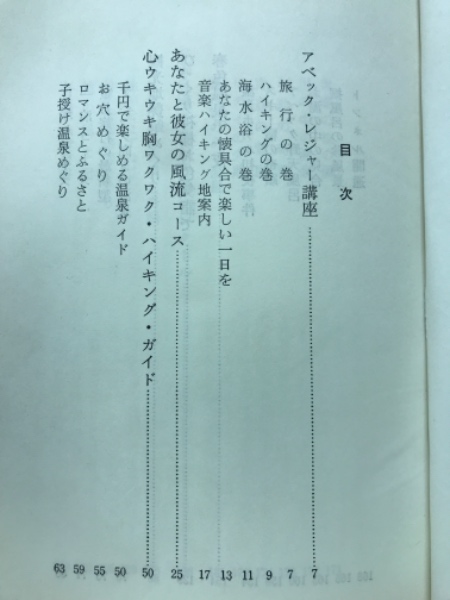 目次
アベック・レジャー講座……7
旅行の巻 7
ハイキングの巻 9
海水浴の巻 11
あなたの懐具合で楽しい一日を 13
音楽ハイキング地案内 17
あなたと彼女の風流コース……25
心ウキウキ胸ワクワク・ハイキング・ガイド……50
千円で楽しめる温泉ガイド 50
お穴めぐり 55
ロマンスとふるさと 59
子授け温泉めぐり 63